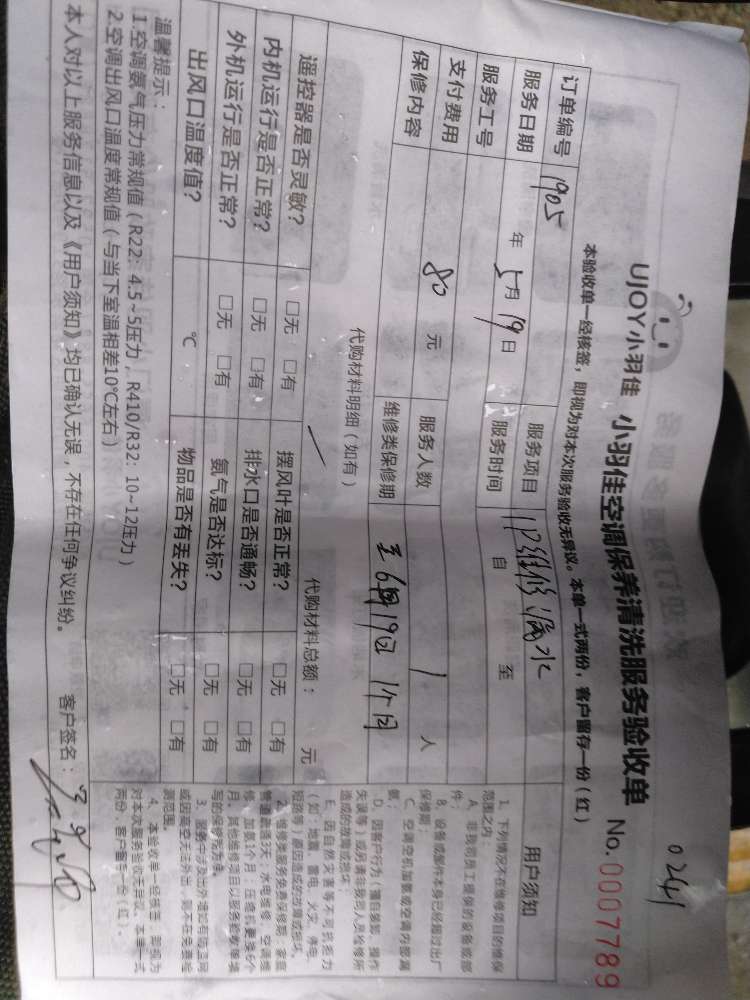 0241
UJOY小羽佳 小羽佳空调保养清洗服务验收单 No.0007789
本验收单一经核签，即视为对本次服务验收无异议。本单一式两份，客户留存一份（红）
订单编号 1905 服务项目 1P维修滴水
服务日期 年 5月 19日 服务时间 自 至
服务工号
支付费用 80 元 服务人数 1 人
保修内容 维修类保修期 至6月19日 1个月
代购材料明细（如有）
代购材料总额： 元
遥控器是否灵敏？ □无 □有 摆风叶是否正常？ □无 □有
内机运行是否正常？ □无 □有 排水口是否通畅？ □无 □有
外机运行是否正常？ □无 □有 氨气是否达标？ □无 □有
出风口温度值？ ℃ 物品是否有丢失？ □无 □有
温馨提示：
1.空调氨气压力常规值（R22: 4.5~5压力，R410/R32: 10~12压力）
2.空调出风口温度常规值（与当下室温相差10℃左右）
本人对以上服务信息以及《用户须知》均已确认无误，不存在任何争议纠纷。 客户签名：
用户须知
1、下列情况不在维修项目的维保
范围之内：
A、非我司员工提供的设备或部
件；
B、设备或部件本身已经超过出厂
保修期；
C、空调空机加氨或空调内部漏
氨；
D、因客户行为（擅自装卸、操作
失误等）或另请非我司人员检修所
造成的故障或损坏；
E、因自然灾害等不可抗拒力
（如：地震、雷电、火灾、停电、
短路等）原因造成的故障或损坏。
2、维修类服务免费保修期：家庭
管道疏通3天，水电维修、空调维
修、加氨1个月，压缩机更换6个
月，其他维修项目以服务验收单填
写的保修期为准。
4、本验收单一经核签，即视为
对本次服务验收无异议。本单一式
两份，客户留存一份（红）。